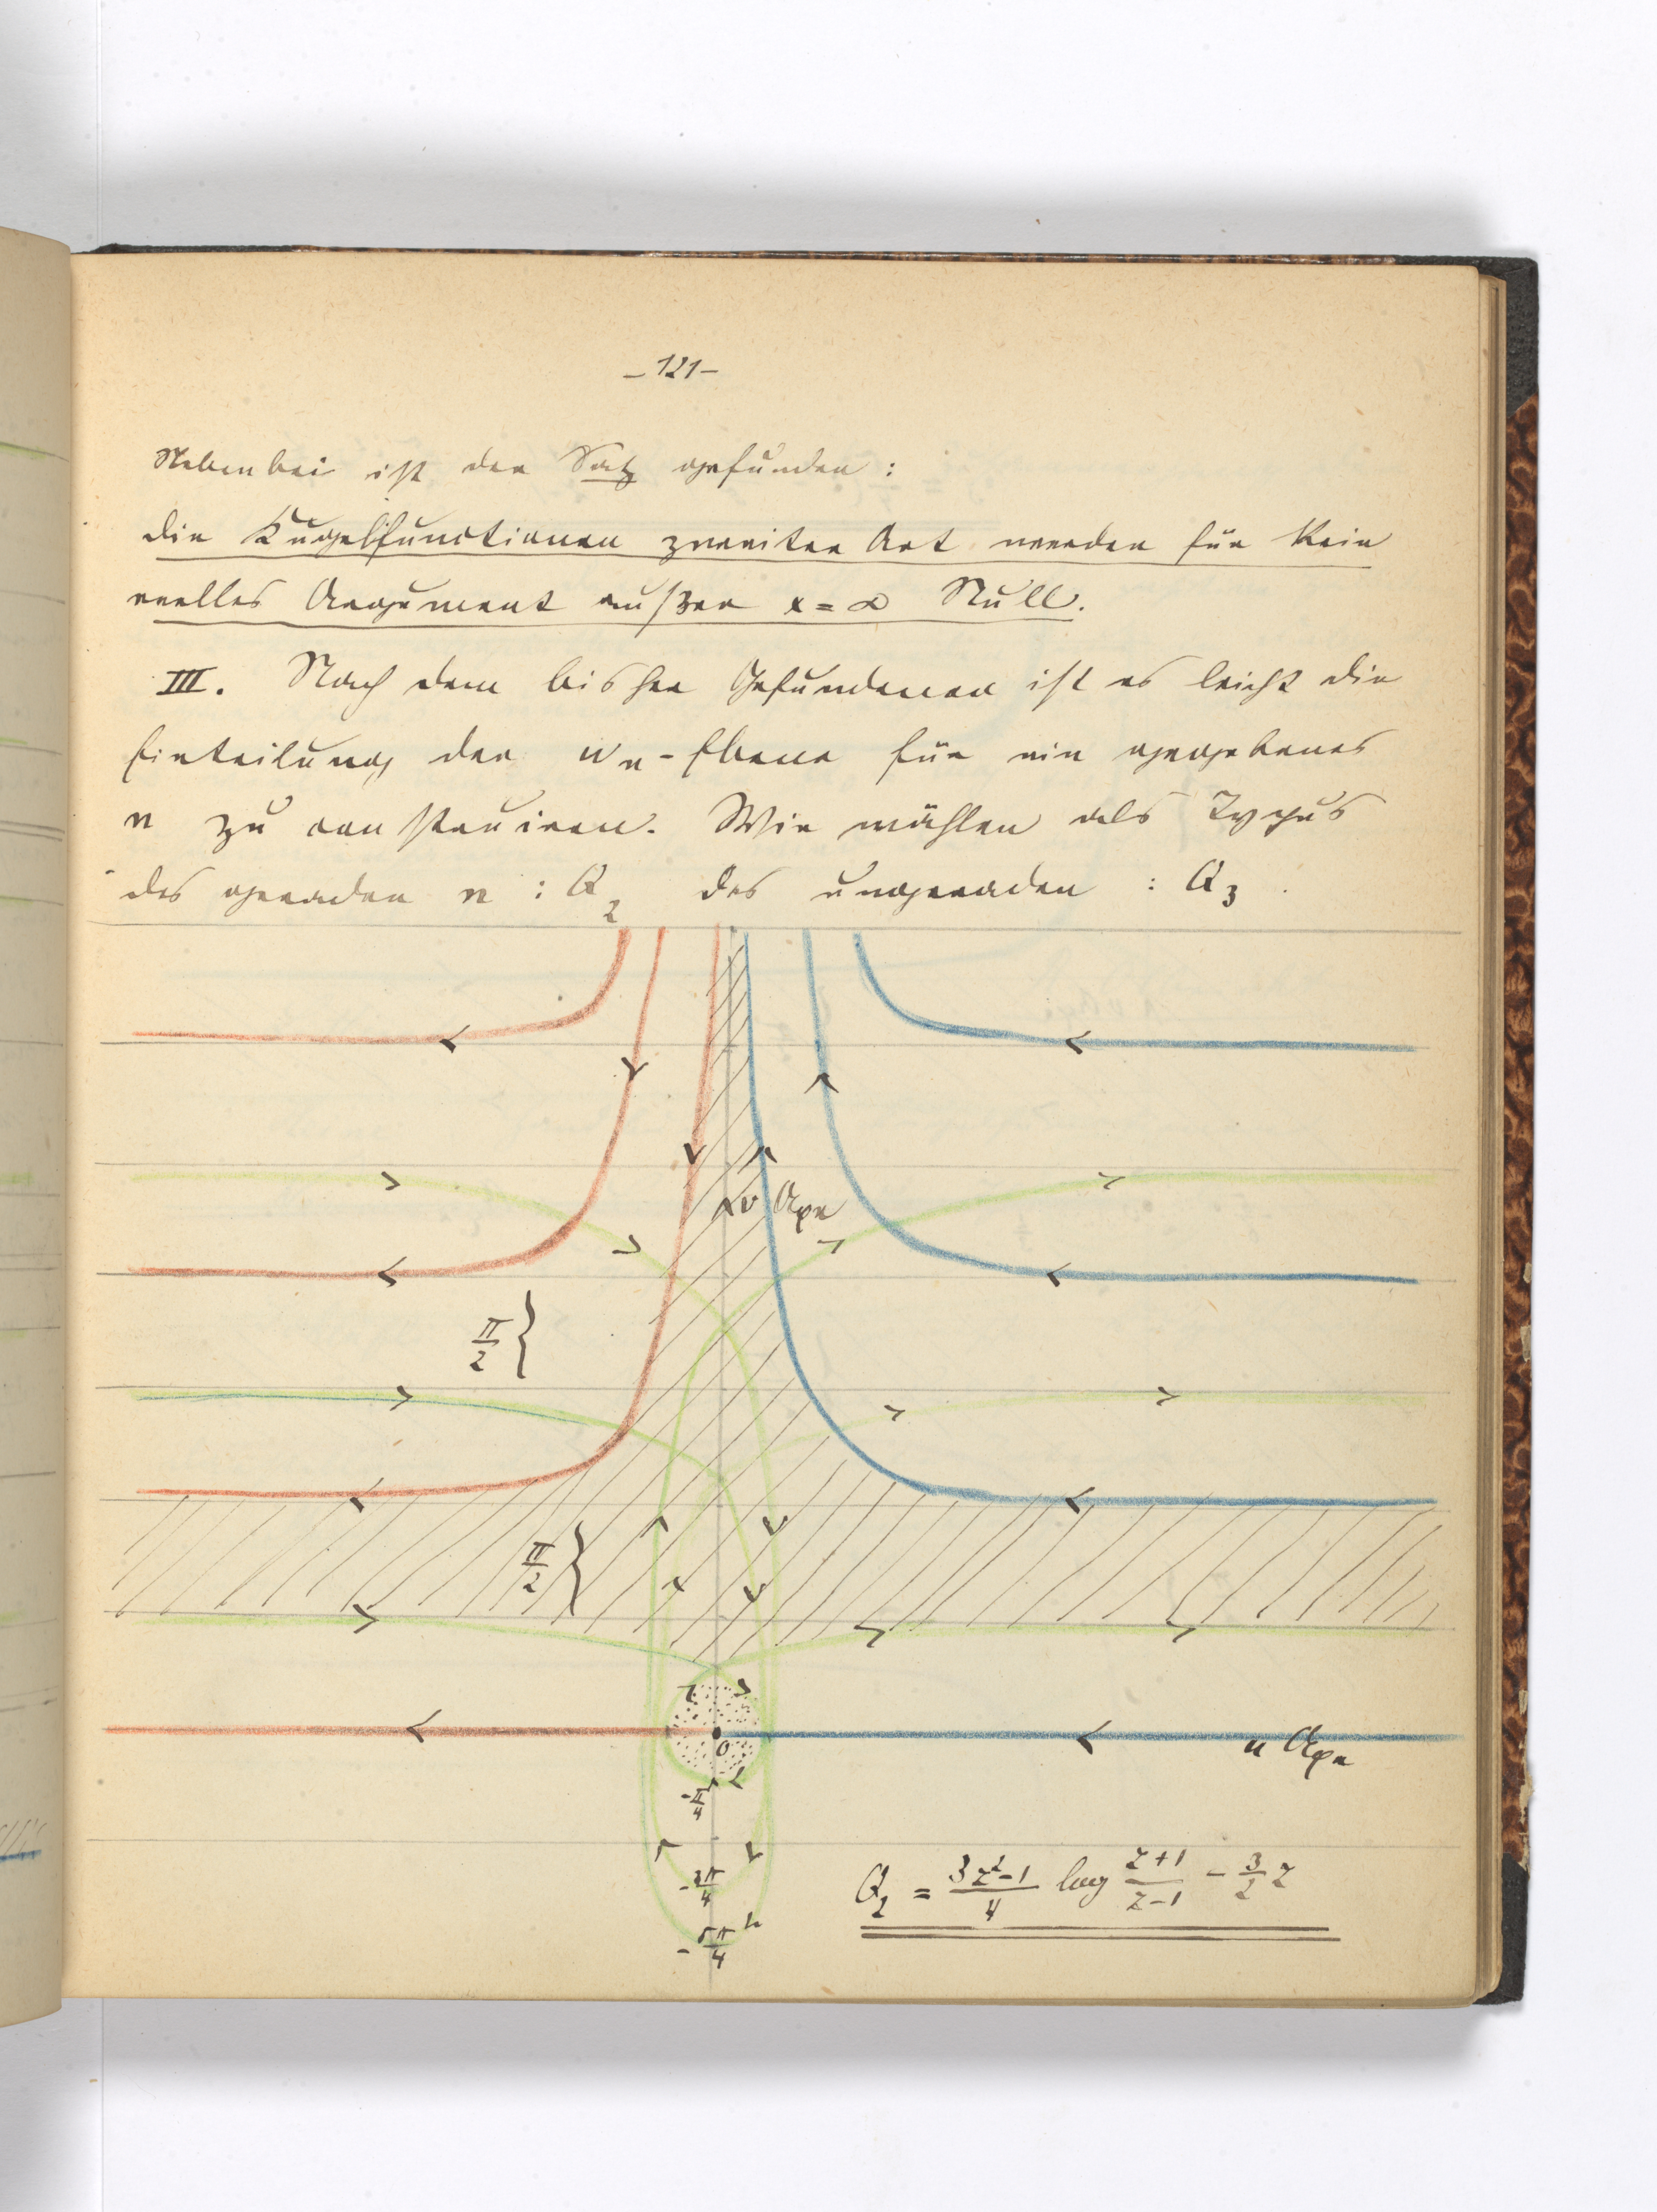 – 121 –
Nebenbei ist der Satz gefunden :
die Kugelfunctionen zweiter Art werden für kein
reelles Argument außer x = ∞ Null.
III. Nach dem bisher Gefundenen ist es leicht die
Einteilung der wn-Ebene für ein gegebenes
n zu construiren. Wir wählen als Typus
des geraden n : Q2 des ungeraden : Q3 .
v Axe
π/2 {
π/2 {
0
u Axe
-π/4
-3π/4
-5π/4
Q2 = (3z²-1)/4 log (z+1)/(z-1) - 3/2 z